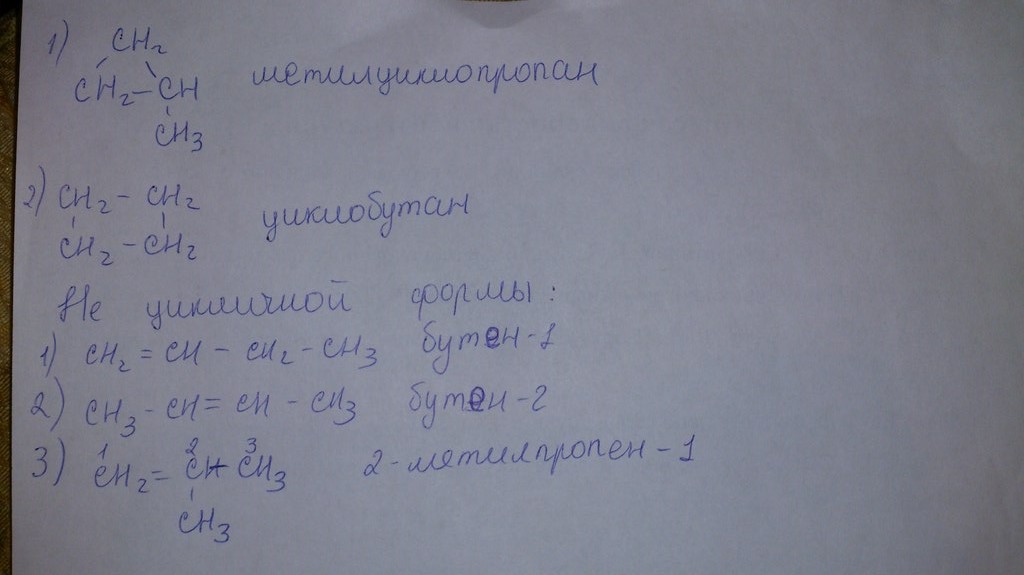 1) CH2
CH2-CH метилциклопропан
CH3
2) CH2 - CH2
CH2 - CH2 циклобутан
Не цикличной формы:
1) CH2 = CH - CH2 - CH3 бутен-1
2) CH3 - CH = CH - CH3 бутен-2
1 2 3
3) CH2 = CH - CH3 2-метилпропен-1
CH3